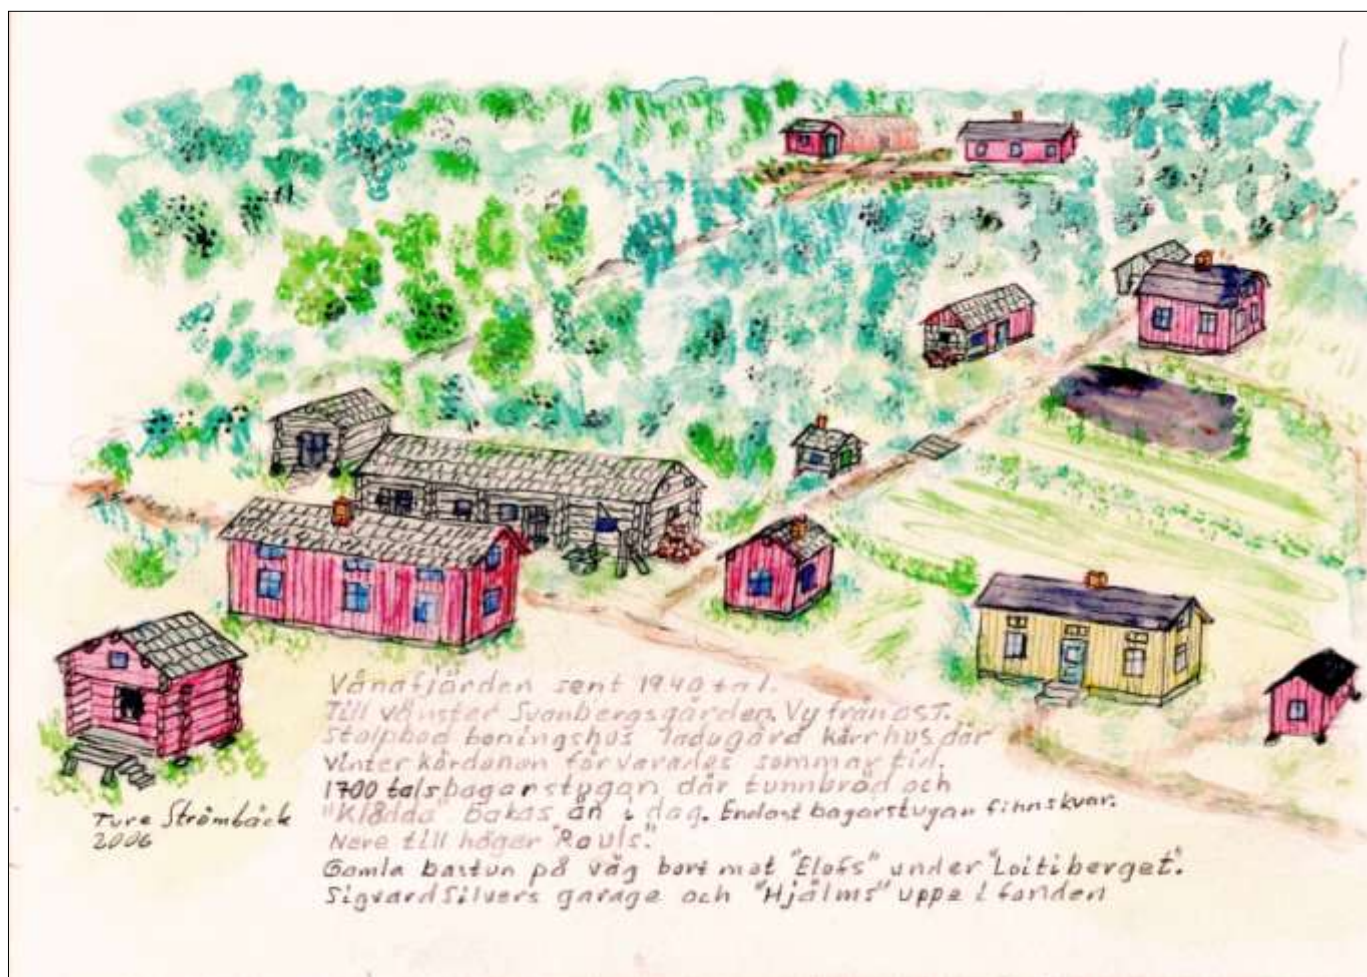 Vånafjärden sent 1940 tal.
Till vänster Svanbergsgården. Vy från OST.
Stolpbod boningshus ladugård kärrhus där
vinter kördonen förvarades sommartid.
1700 talsbagarstugan där tunnbröd och
"Klådda" bakas än i dag. Endast bagarstugan finnskvar.
Nere till höger "Rauls".
Gamla bastun på väg bort mot "Elofs" under "Loitiberget".
Sigvard Silvers garage och "Hjälms" uppe i fonden
Ture Strömbäck
2006